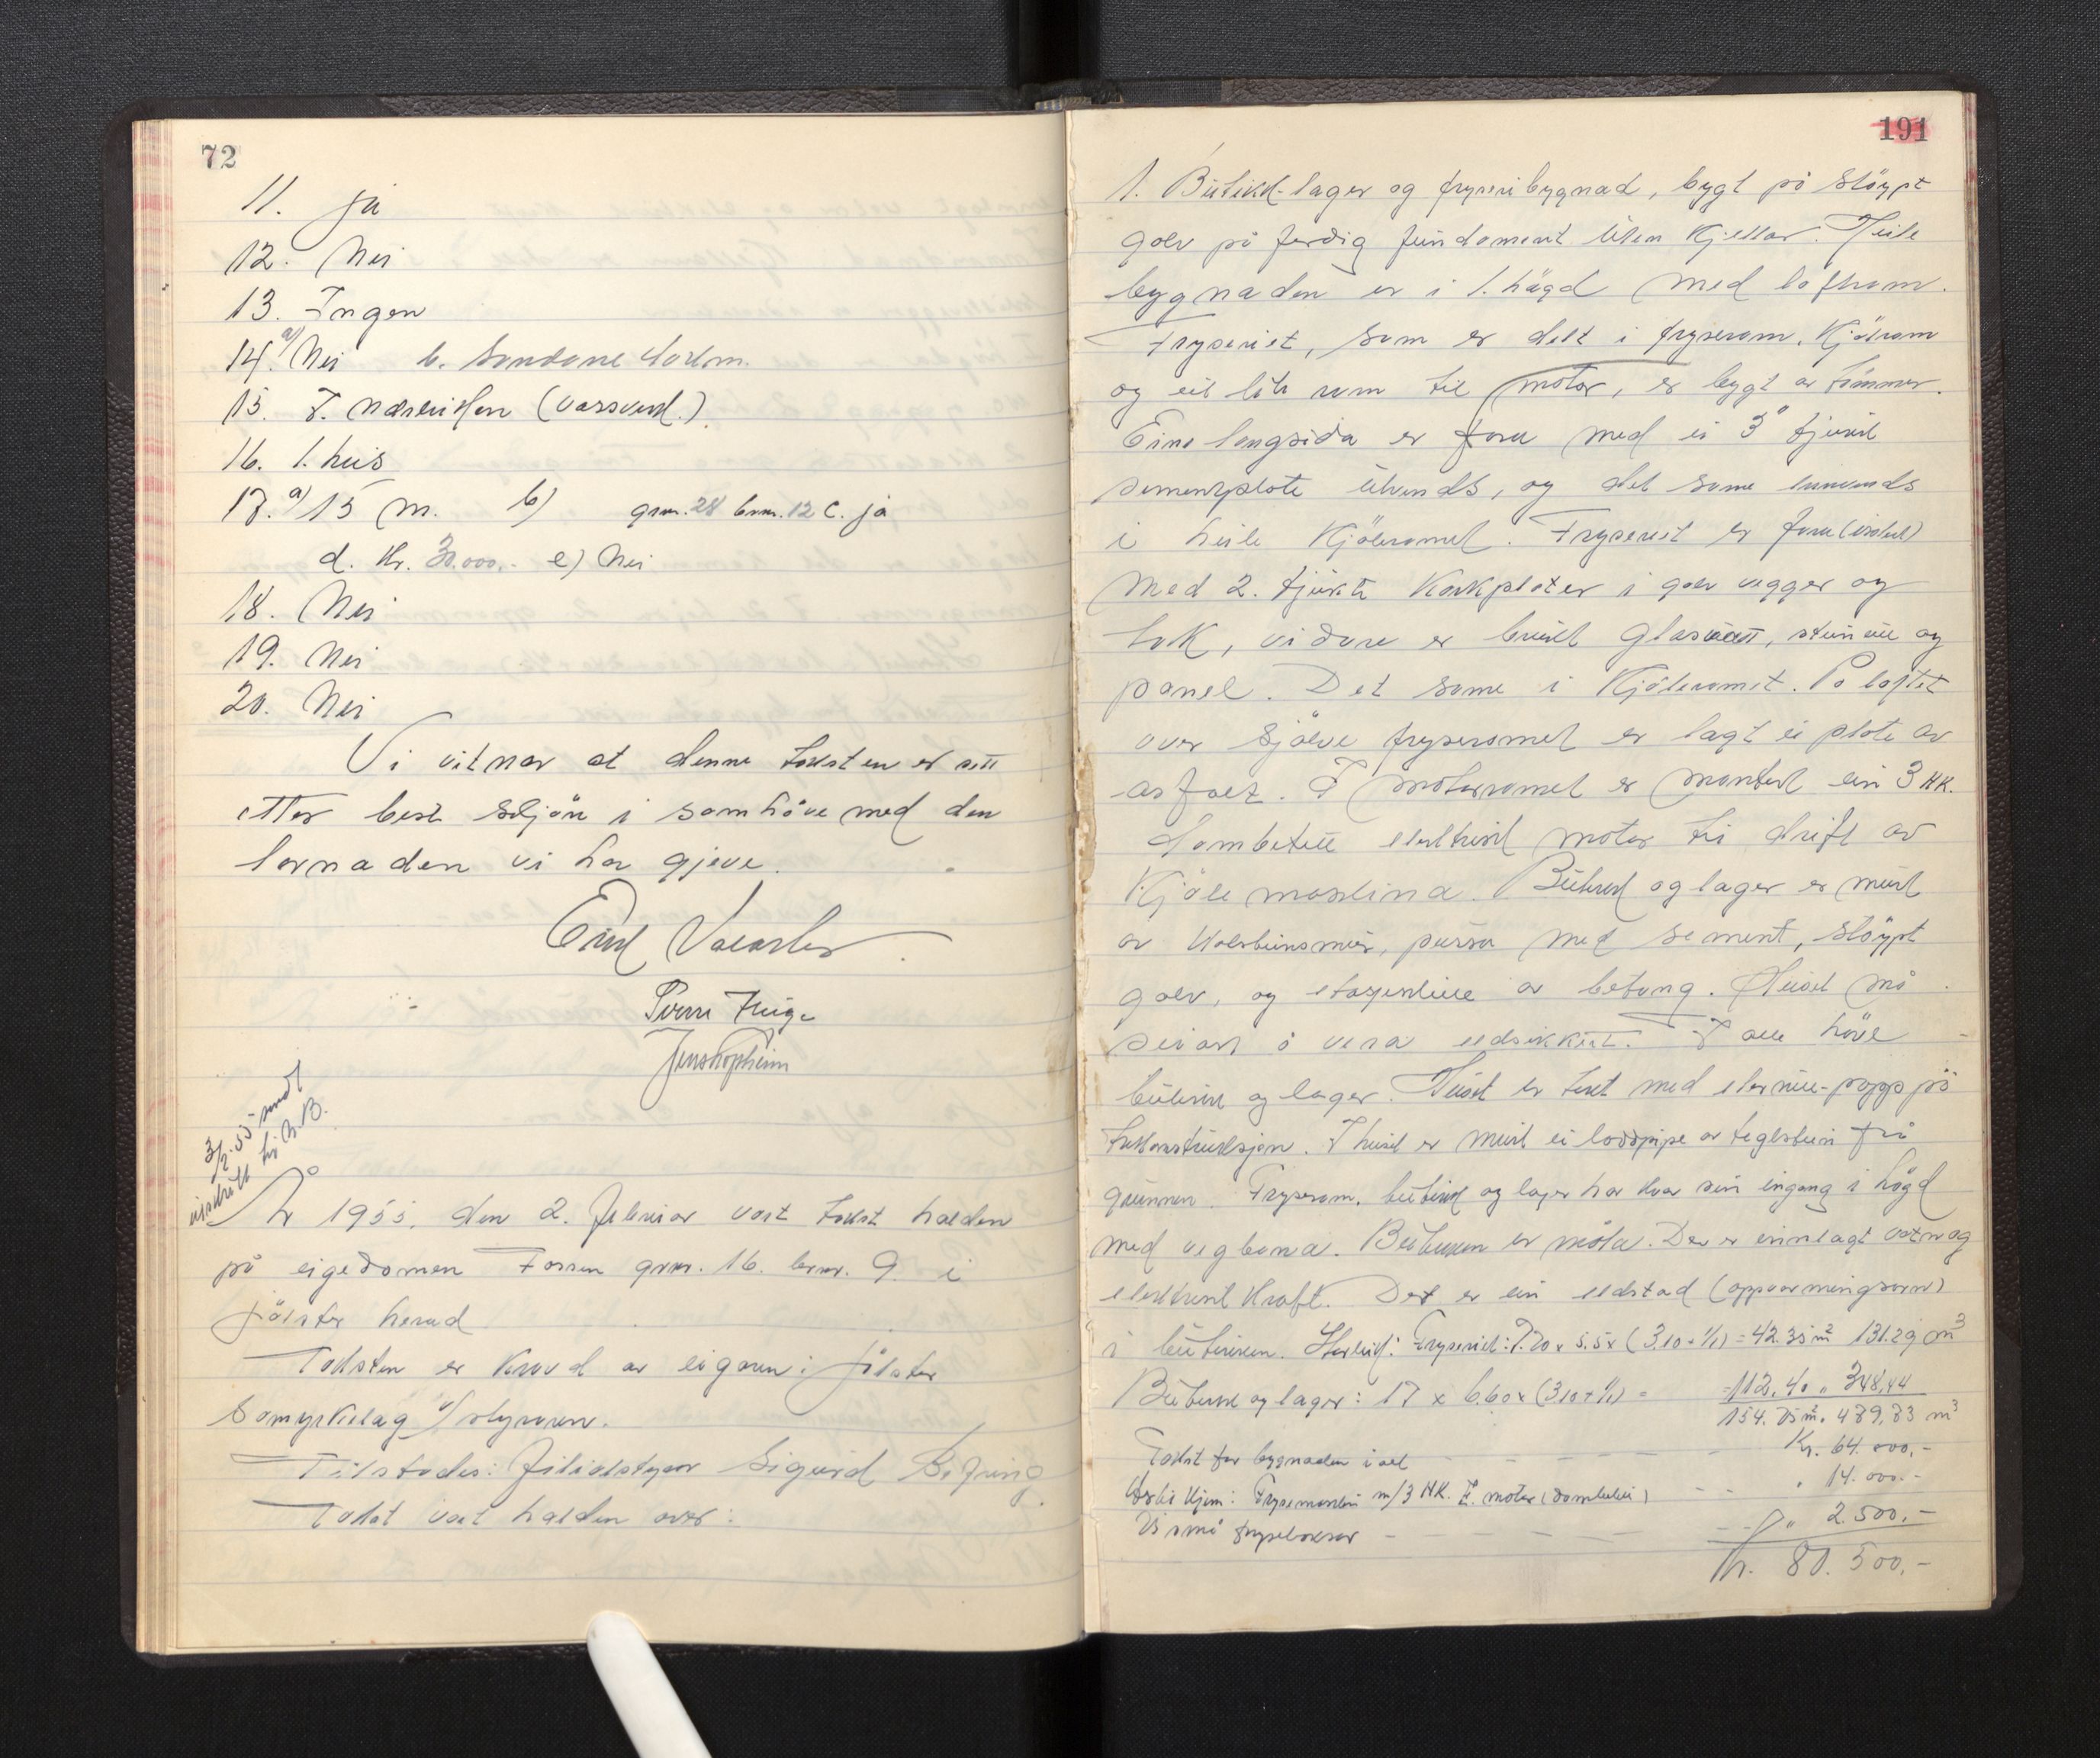 72
11. ja
12. Nei
13. Ingen
14. a) Nei b. Sandane
15. I. (vassverk.)
16. 1. hus
17. a) 15 m. b) gnr. 28 bnr. 12 c. ja
d. kr. 30.000.- e) Nei
18. Nei
19. Nei
20. Nei
Vi vitnar at denne taksten er sett
etter best skjön i samhöve med den
lovnaden vi har gjeve.
Jens Kopheim
3/2.55 sendt
utskrift til B.B.
År 1955, den 2. februar vart takst halden
på eigedomen Fossen gnr. 16. bnr. 9. i
Jölster herad
Taksten er kravd av eigaren: Jölster
Samyrkelag v/ styraren.
Tilstades: filialstyrar Sigurd
Takst vart halden over:
191
1. Butikk-lager og fryseribygnad, bygt på stöypt
golv på ferdig fundament uten kjellar. Heile
bygnaden er i 1. högd med loftrom.
Fryseriet, som er delt i fryserom, kjölerom
og eit lite rom til motor, er bygt av tömmer.
Eine langsida er fora med ei 3" tjukk
sementplate utvendes, og det same innvendes
i heile kjölerommet. Fryseriet er fora (isolert)
med 2. tjukke korkplater i golv vegger og
tak, vidare er brukt glasvatt, steinull og
panel. Det same i kjöleromet. På loftet
over sjölve fryseromet er lagt ei plate av
asfalt. I motorromet er montert ein 3 HK.
dambetell elektrisk motor til drift av
kjölemaskina. Butikk og lager er murt
av mur, pussa med sement, stöypt
golv, og etasjeskille av betong. Huset må
seiast å vera eldsikkert. I alle höve
butikk og lager. Huset er tekt med eternitt-papp på
takkonstruksjon. I huset er murt ei loddpipe av teglstein frå
grunnen. Fryserom, butikk og lager har kvar sin ingang i högd
med vegbana. Butikken er måla. Der er innlagt vatn og
elektrisk kraft. Det er ein eldstad (oppvarmingsovn)
i butikken. Storleik: Fryseriet: 7.70 x 5.5 x (3.10 + 1/1) = 42.35 m² 131.29 m³
Butikk og lager: 17 x 6.60 x (3.10 + 1/1) = 112.40 " 348,44
154.75 m². 479,73 m³
Takst for bygnaden i alt - - - - Kr. 64.000,-
Attåt kjem: Frysemaskin m/3 HK. E. motor (dambetell) - - " 14.000.-
fryseboksar - - - - - " 2.500,-
Kr. 80.500,-